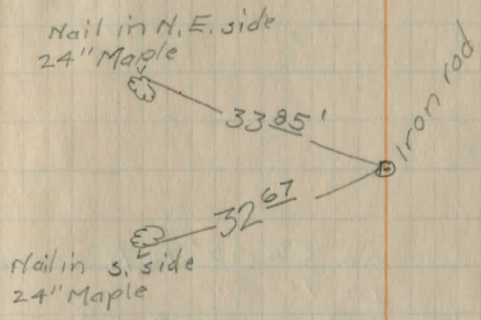 Nail in N.E. side
24" Maple
33 85'
Iron rod
32 67
Nail in s. side
24" Maple